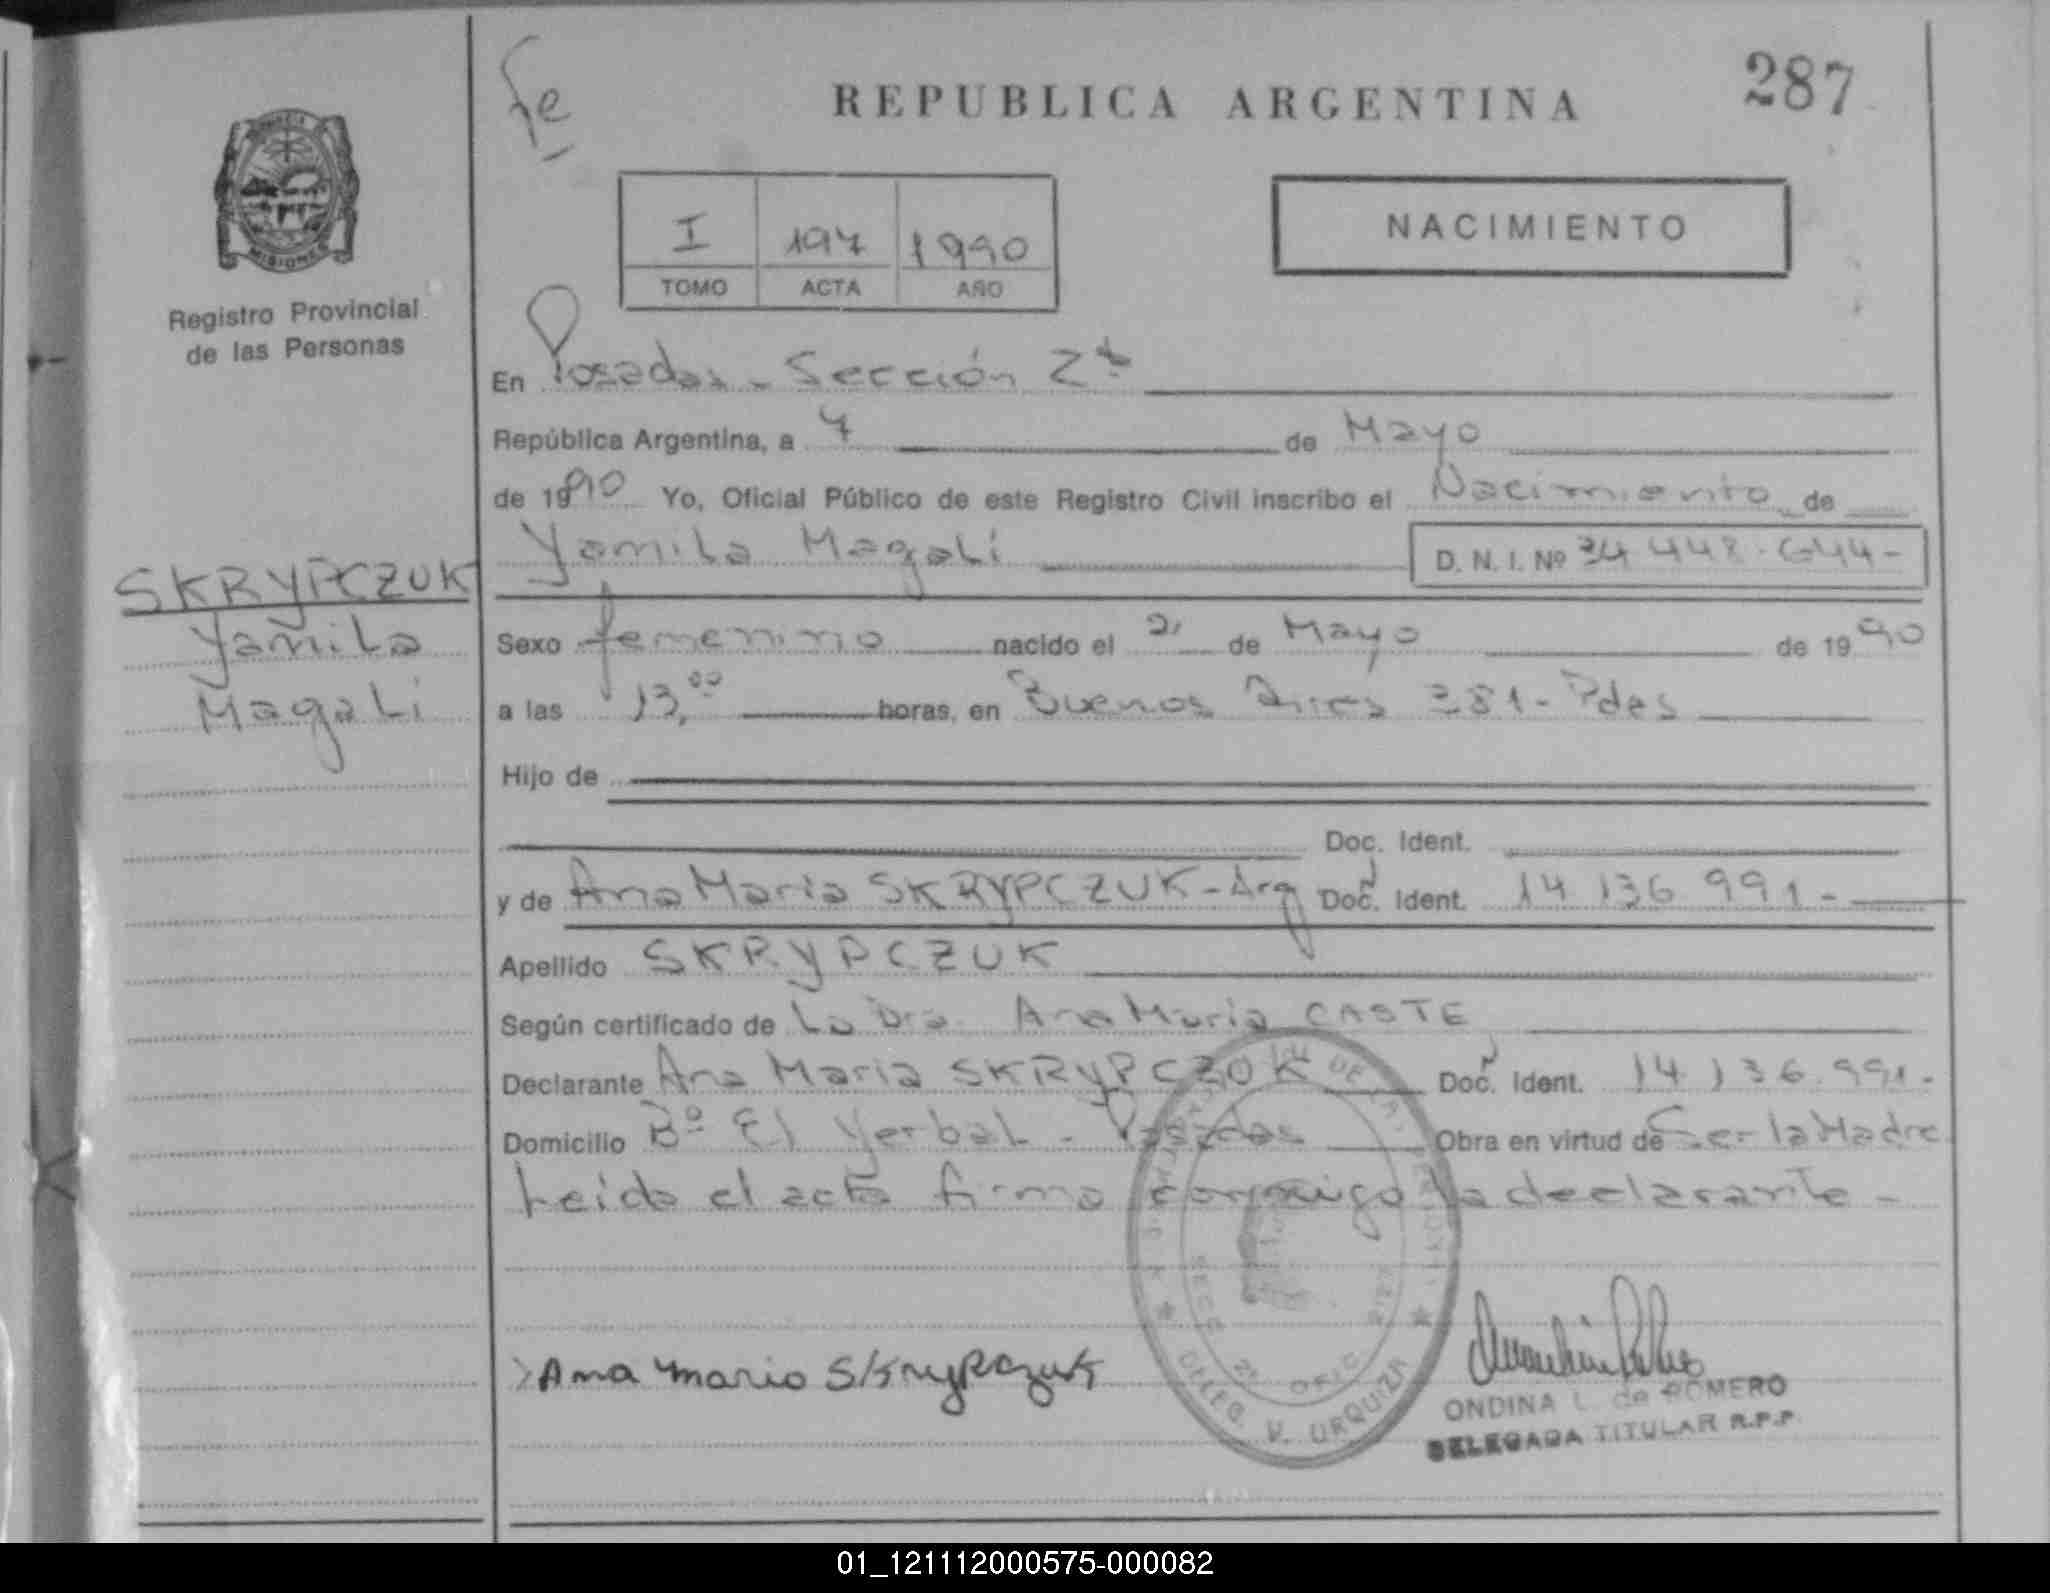 Fe
REPUBLICA ARGENTINA
287
PROVINCIA
MISIONES
Registro Provincial
de las Personas
I 197 1990
TOMO ACTA AÑO
NACIMIENTO
En Posadas - Sección 2ª
República Argentina, a 7 de Mayo
de 1990 Yo, Oficial Público de este Registro Civil inscribo el Nacimiento de
Yamila Magali D. N. I. Nº 34 448.644-
SKRYPCZUK
Yamila
Magali
Sexo femenino nacido el 2 de Mayo de 1990
a las 13,00 horas, en Buenos Aires 381- Pdas
Hijo de
Doc. Ident.
y de Ana Maria SKRYPCZUK-Arg Doc. Ident. 14 136 991-
Apellido SKRYPCZUK
Según certificado de La Dra. Ana Maria CASTE
Declarante Ana Maria SKRYPCZUK Doc. Ident. 14 136.991.
Domicilio Bº El Yerbal - Posadas Obra en virtud de Ser la Madre
Leida el acta firma conmigo la declarante -
Ana maria Skrypczuk
SECC 2ª OFIC
DELEG. V. URQUIZA
ONDINA L. de ROMERO
DELEGADA TITULAR R.P.P.
01_121112000575-000082